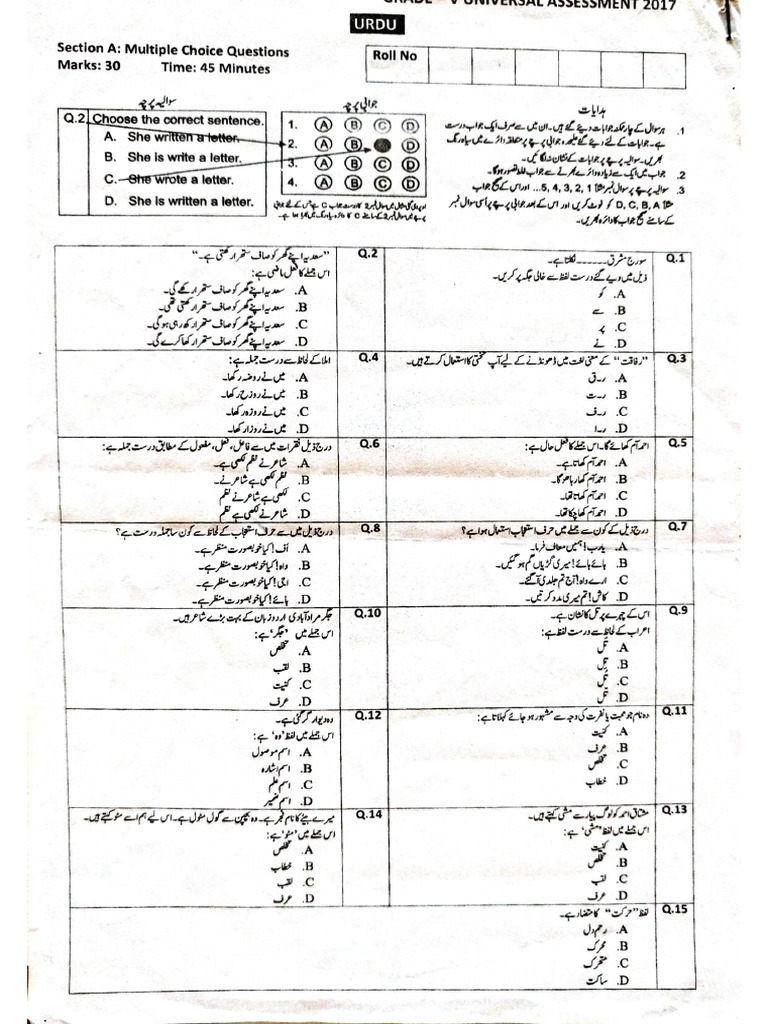 GRADE – V UNIVERSAL ASSESSMENT 2017
URDU
Section A: Multiple Choice Questions
Marks: 30 Time: 45 Minutes
Roll No
سوالیہ پرچہ
جوابی پرچہ
ہدایات
Q.2. Choose the correct sentence.
A. She written a letter.
B. She is write a letter.
C. She wrote a letter.
D. She is written a letter.
1. A B C D
2. A B D
3. A B C D
4. A B C D
1. ہر سوال کے چار ممکنہ جوابات دیئے گئے ہیں۔ ان میں سے صرف ایک جواب درست
ہے۔ جوابات کے لئے دیئے گئے علیحدہ جوابی پرچے پر متعلقہ دائرے میں سیاہ رنگ
بھریں۔ سوالیہ پرچے پر جوابات کے نشان نہ لگائیں۔
2. جواب میں ایک سے زیادہ دائرے بھرنے سے جواب غلط تصور ہوگا۔
3. سوالیہ پرچے پر سوال نمبر مثلاً 1, 2, 3, 4, 5... اور اس کے صحیح جواب
مثلاً D, C, B, A کو نوٹ کریں اور اس کے بعد جوابی پرچے پر اُسی سوال نمبر
کے سامنے صحیح جواب کا دائرہ بھریں۔
Q.1 سورج مشرق ــــــــــ نکلتا ہے۔
ذیل میں دیے گئے درست لفظ سے خالی جگہ پر کریں۔
A. کو
B. سے
C. پر
D. نے
Q.2 ”سعدیہ اپنے گھر کو صاف ستھرا رکھتی ہے۔“
اس جملے کا فعل ماضی ہے:
A. سعدیہ اپنے گھر کو صاف ستھرا رکھے گی۔
B. سعدیہ اپنے گھر کو صاف ستھرا رکھتی تھی۔
C. سعدیہ اپنے گھر کو صاف ستھرا رکھ رہی ہوگی۔
D. سعدیہ اپنے گھر کو صاف ستھرا رکھا کرے گی۔
Q.3 ”رفاقت“ کے معنی لغت میں ڈھونڈنے کے لیے آپ تختی کا استعمال کرتے ہیں۔
A. ر۔ق
B. ر۔ت
C. ر۔ف
D. ر۔ا
Q.4 املا کے لحاظ سے درست جملہ ہے:
A. میں نے روضہ رکھا۔
B. میں نے روزح رکھا۔
C. میں نے روزہ رکھا۔
D. میں نے روزا رکھا۔
Q.5 احمد آم کھائے گا۔ اس جملے کا فعل حال ہے:
A. احمد آم کھاتا ہے۔
B. احمد آم کھا رہا ہوگا۔
C. احمد آم کھاتا تھا۔
D. احمد آم کھا چکا تھا۔
Q.6 درج ذیل فقرات میں سے فاعل، فعل، مفعول کے مطابق درست جملہ ہے:
A. شاعر نے نظم لکھی ہے۔
B. نظم لکھی ہے شاعر نے۔
C. لکھی ہے شاعر نے نظم
D. شاعر نے لکھی ہے نظم
Q.7 درج ذیل کے کون سے جملے میں حرف استعجاب استعمال ہوا ہے؟
A. یارب! ہمیں معاف فرما۔
B. ہائے ہائے! میری گڑیاں گم ہو گئیں۔
C. ارے واہ! آج تم جلدی آگئے۔
D. کاش! تم میری مدد کرتیں۔
Q.8 درج ذیل میں سے حرف استعجاب کے لحاظ سے کون سا جملہ درست ہے؟
A. اُف! کیا خوبصورت منظر ہے۔
B. واہ! کیا خوبصورت منظر ہے۔
C. اجی! کیا خوبصورت منظر ہے۔
D. ہائے! کیا خوبصورت منظر ہے۔
Q.9 اس کے چہرے پر تل کا نشان ہے۔
اعراب کے لحاظ سے درست لفظ ہے:
A. تَل
B. تِل
C. تُل
D.
Q.10 جگر مراد آبادی اردو زبان کے بہت بڑے شاعر ہیں۔
اس جملے میں ’جگر‘ ہے:
A. تخلص
B. لقب
C. کنیت
D. عرف
Q.11 وہ نام جو محبت یا نفرت کی وجہ سے مشہور ہو جائے کہلاتا ہے:
A. کنیت
B. عرف
C. تخلص
D. خطاب
Q.12 وہ دیوار گر گئی ہے۔
اس جملے میں لفظ ’وہ‘ ہے:
A. اسم موصول
B. اسم اشارہ
C. اسم علم
D. اسم ضمیر
Q.13 مشتاق احمد کو لوگ پیار سے مشی کہتے ہیں۔
اس جملے میں لفظ ’مشی‘ ہے:
A. کنیت
B. تخلص
C. لقب
D. عرف
Q.14 میرے بیٹے کا نام فجر ہے۔ وہ بچپن سے گول مٹول ہے۔ اس لیے ہم اسے مٹو کہتے ہیں۔
اس جملے میں ’مٹو‘ ہے:
A. تخلص
B. خطاب
C. لقب
D. عرف
Q.15 لفظ ”حرکت“ کا متضاد ہے۔
A. رحم دل
B. محرک
C. متحرک
D. ساکت